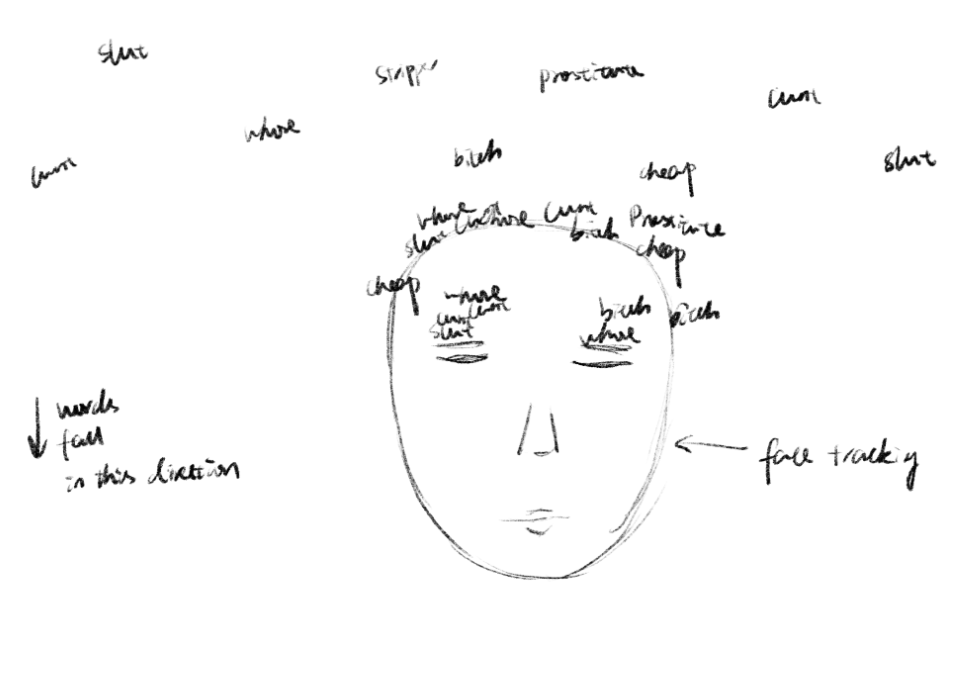 slut
stripper
prostitute
cunt
whore
cunt
bitch
cheap
slut
whore
cunt
whore
cunt
slut
bitch
Prostitute
cheap
cheap
whore
cunt
cunt
slut
bitch
whore
bitch
words
fall
in this direction
face tracking